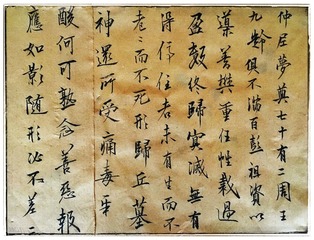 仲尼夢奠七十有二周王
九齡俱不滿百彭祖資以
導養樊重任性裁過
盈數終歸冥滅無有
得停住者未有生而不
老〻而不死形歸丘墓
神還所受痛毒辛
酸何可熟念善惡報
應如影随形必不差二